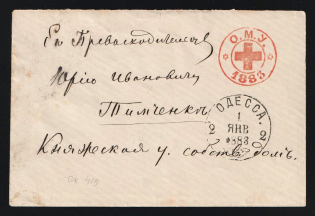 Его Превосходительству
О.М.У.
1883
Юрію Ивановичу
Тимченко
ОДЕССА.
1
2 ЯНВ 2
1883
Княжеская у. собств. домъ.